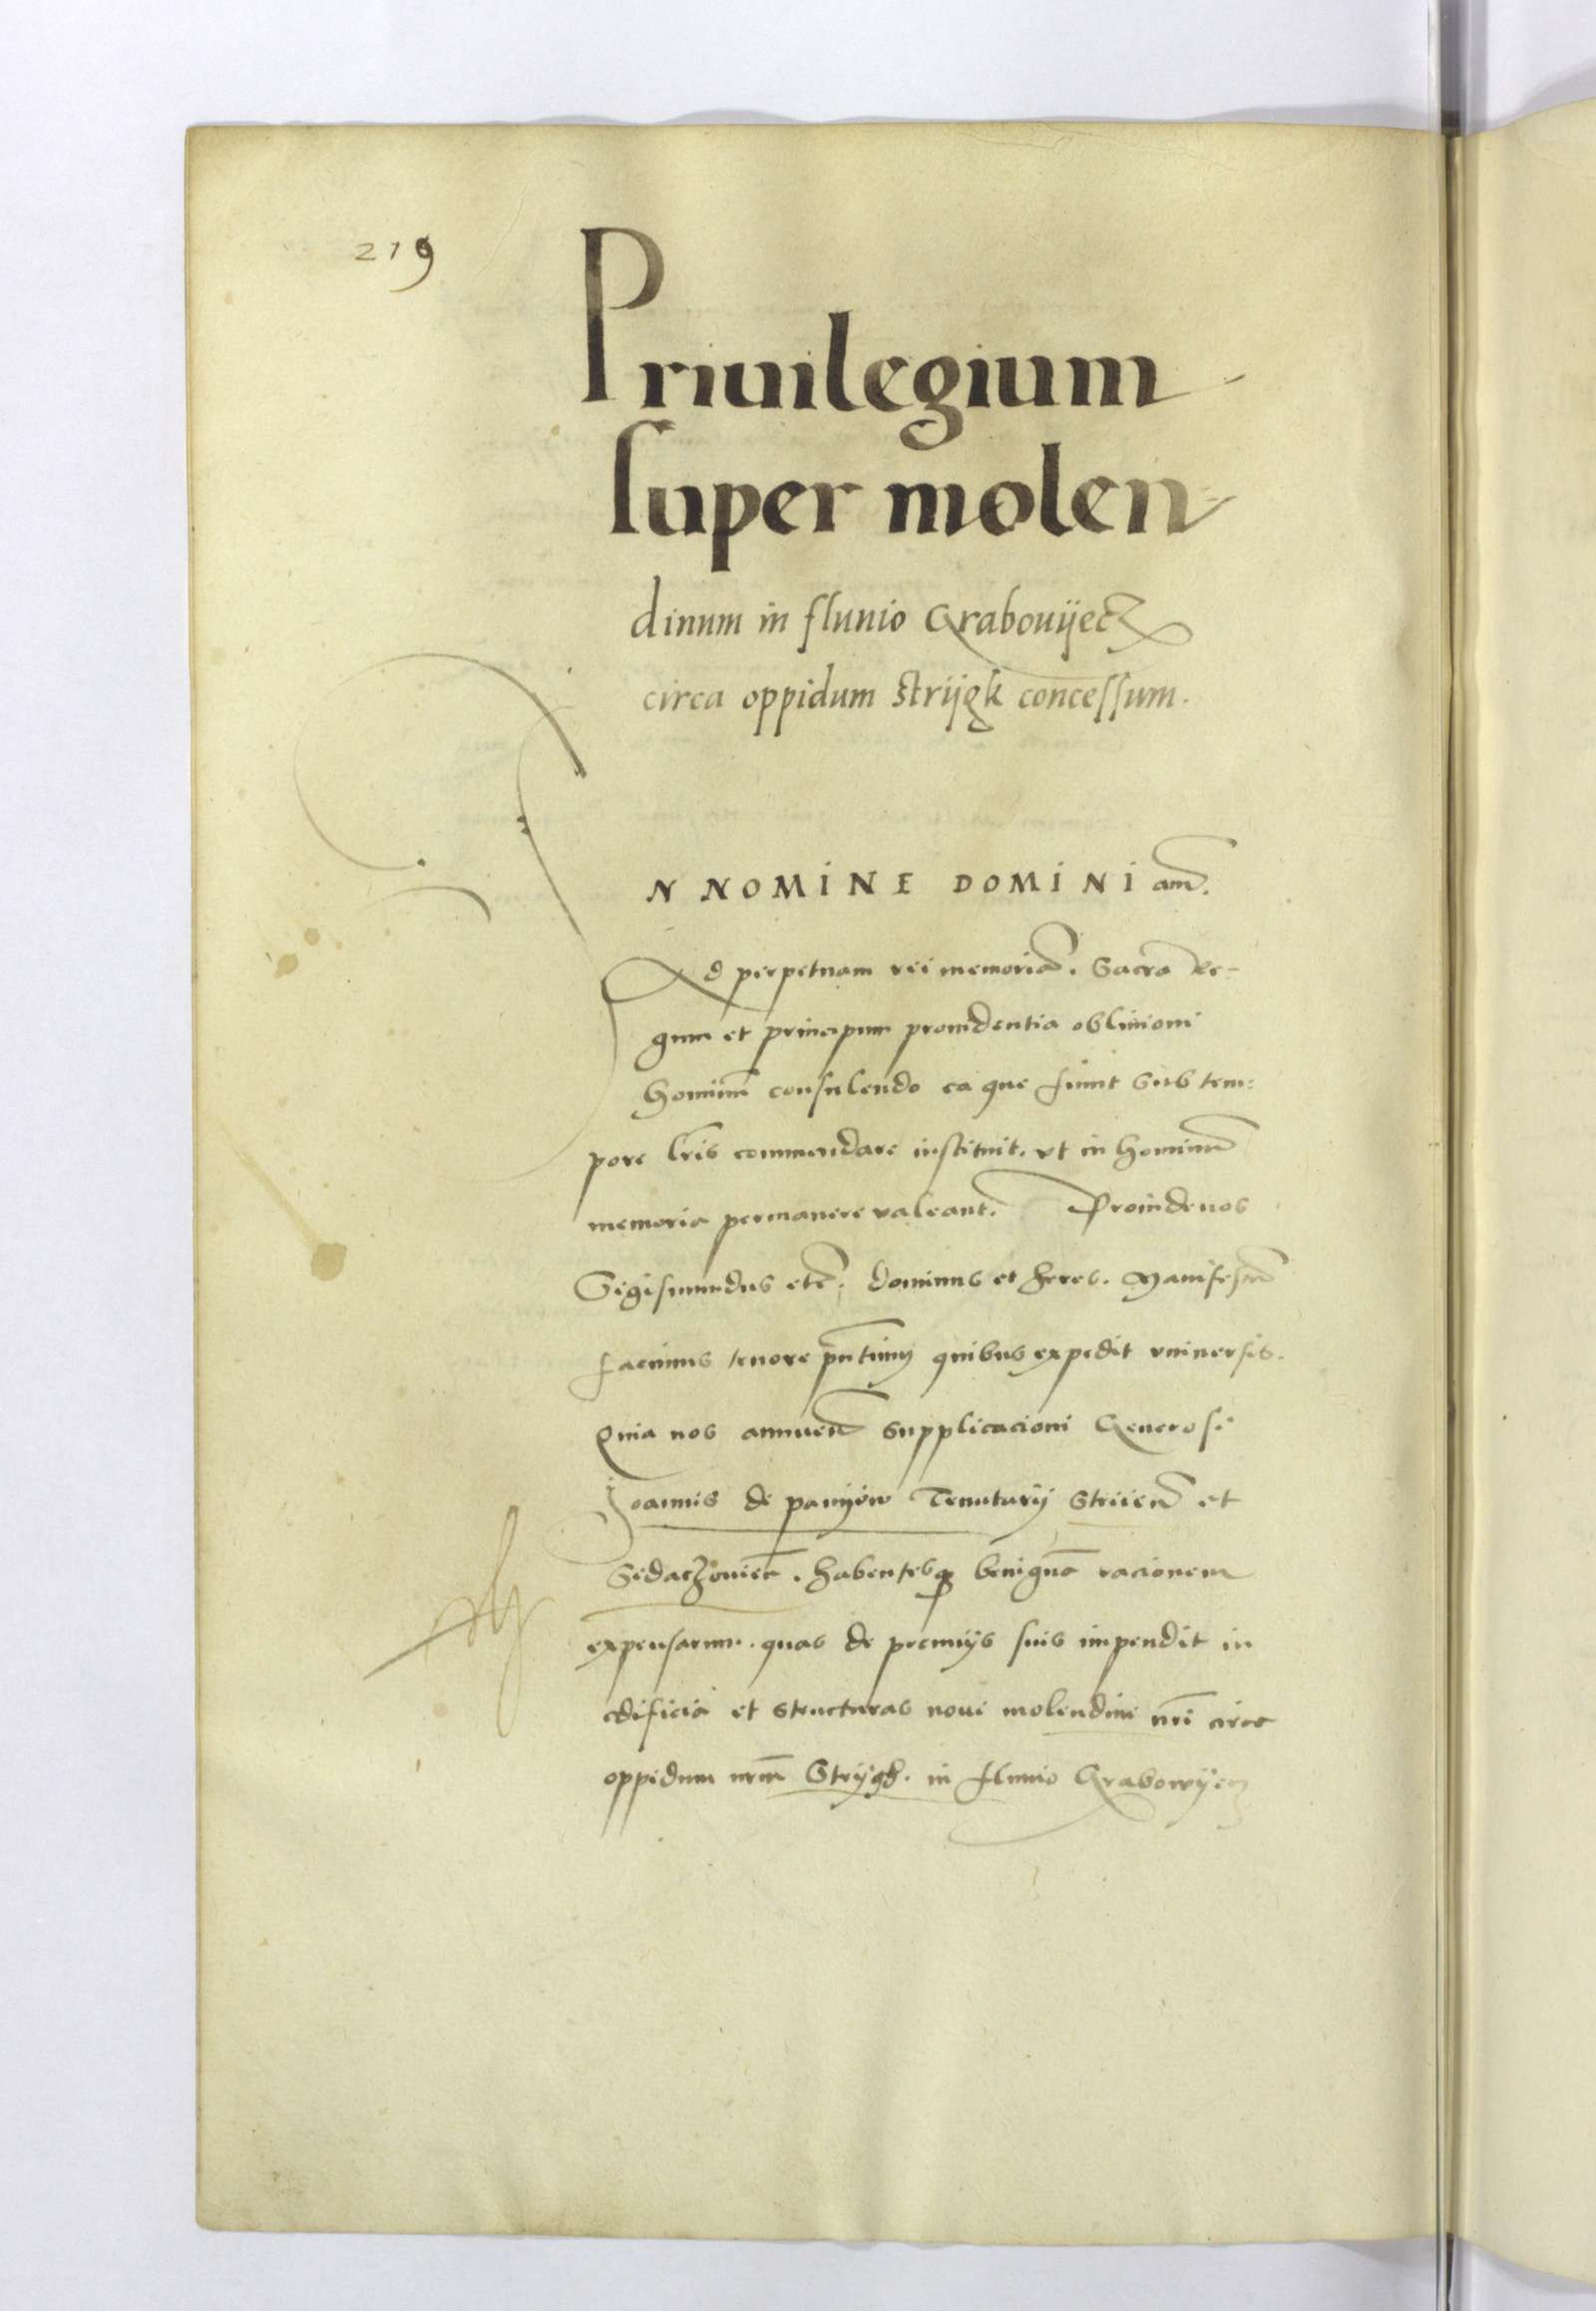 219
Priuilegium
super molen=
dinum in fluuio Grabouijecz
circa oppidum Strijgk concessum.
IN NOMINE DOMINI am̄.
Ad perpetuam rei memoriā. Sacra Re=
gum et principum prouidentia obliuioni
hominū consulendo ea que fiunt sub tem=
pore lr̄is commendare instituit. vt in hominū
memoria permanere valeant. Proinde nos
Sigismundus etc̄. dominus et heres. Manifestū
facimus tenore pn̄tium quibus expedit vniuersis.
Quia nos annuen̄ supplicacioni Generosi
Joannis de Tenutarij Striien̄ et
habentesq benignā racionem
expensarum. quas de pecunijs suis impendit in
edificia et structuras noui molendini nr̄i circa
oppidum nrm̄ Strijgk. in fluuio Grabowijecz